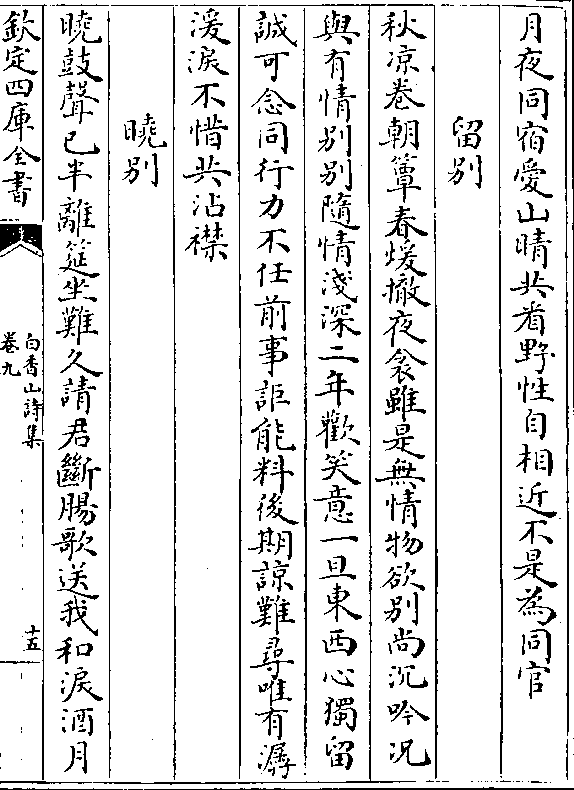 月夜同宿愛山晴共看野性自相近不是為同官
留别
秋凉卷朝簟春煖撤夜衾雖是無情物欲别尚沉吟况
與有情别别隨情淺深二年歡笑意一旦東西心獨留
誠可念同行力不任前事詎能料後期諒難尋唯有潺
湲淚不惜共沾襟
曉别
曉鼓聲已半離筵坐難久請君斷腸歌送我和淚酒月
欽定四庫全書
白香山詩集
卷九
十五